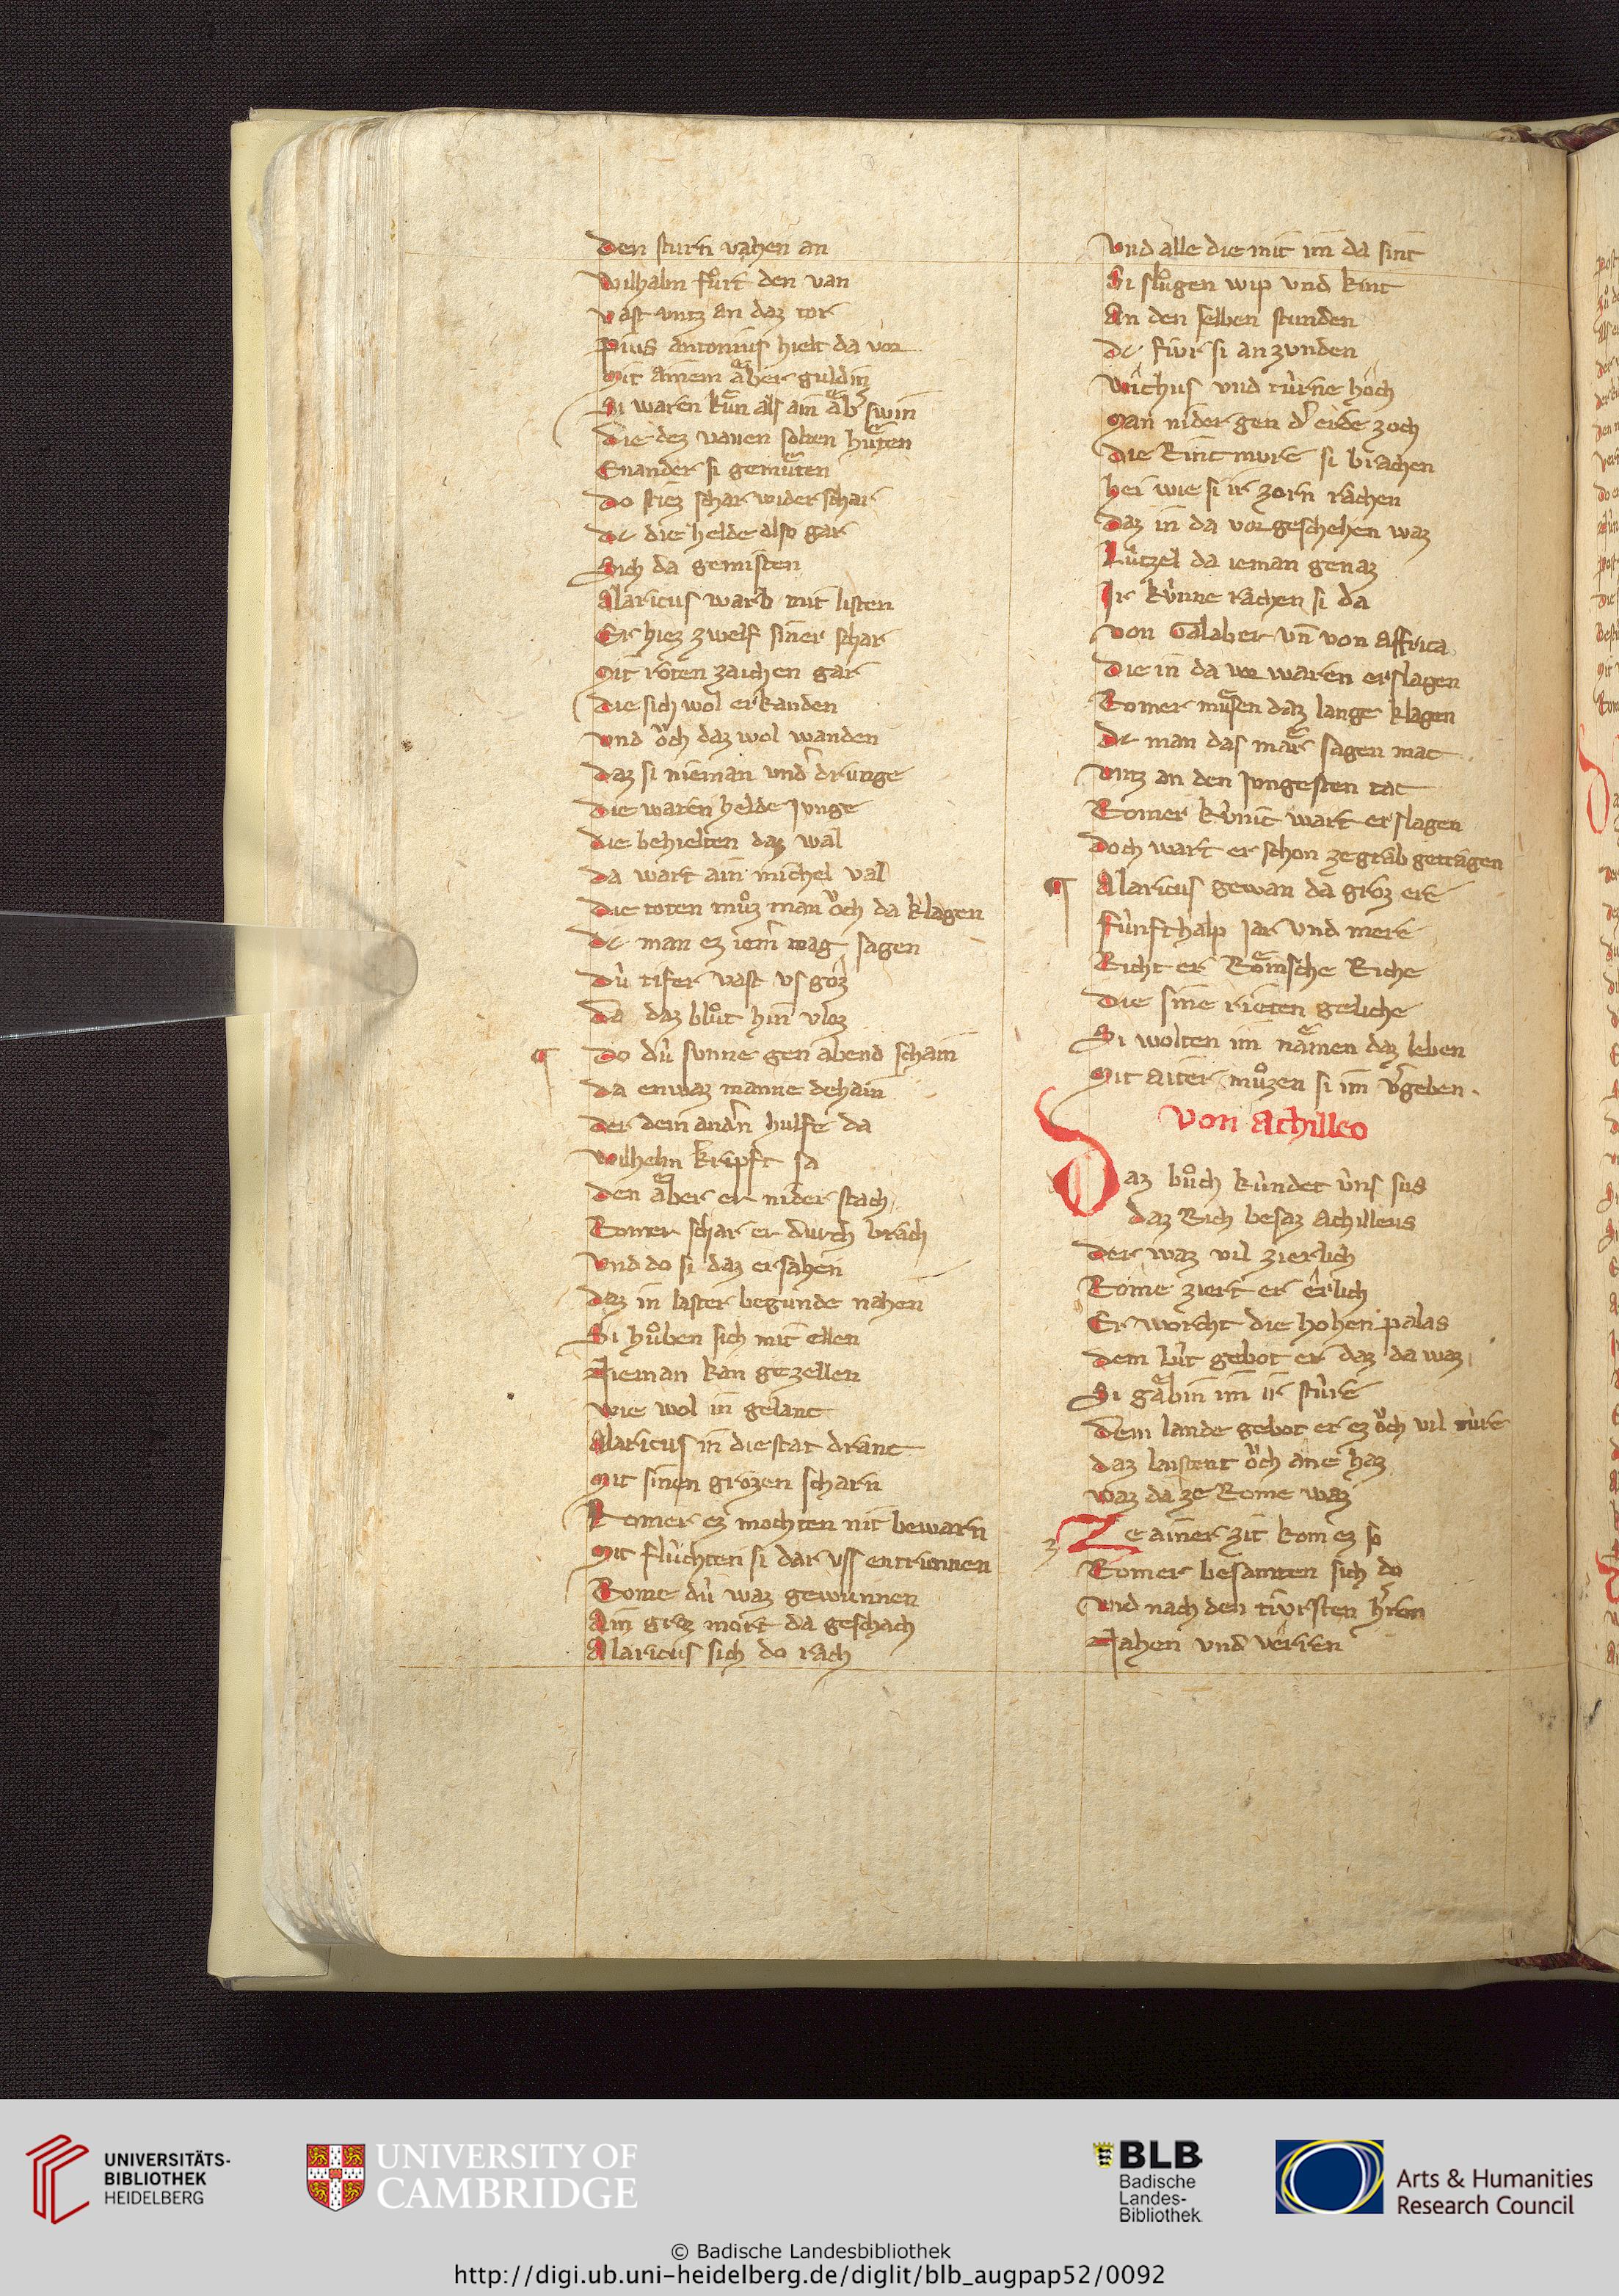 Den sturn vahen an
Wilhalm fuͦrt den van
Vast vntz an daz tor
Pius antonius hielt da vor
Mit ainem aͤber guldin
Si waren kuͤn als ain aͤbˀ swin
Die dez vanen solten huͤten
Enander si gemuͤten
Do stiez schar wider schar
Dc die helde also gar
Sich da gemisten
Alaricus warb mit listen
Er hiez zwelf siner schar
Mit roten zaichen gar
Die sich wol erkanden
Vnd oͮch daz wol wanden
Daz si nieman vndˀ drunge
Die waren helde Jvnge
Die behielten daz wal
Da wart ain michel val
Die toten muͦz man oͮch da klagen
Dc man ez iemˀ mag sagen
Duͥ tifer vast vs goz
Da daz bluͦt hin vloz
¶ Do duͥ sunne gen abend schain
Da enwaz manne dehain
Der dem andˀn hulfe da
Wilhelm kripft sa
Den aͤber er nider stach
Romer schar er durch brach
Vnd do si daz ersahen
Daz in laster begunde nahen
Si huͦben sich mit ellen
Nieman kan gezellen
Wie wol in gelanc
Alaricus in die stat dranc
Mit sinen grozen scharn
Romer ez mochten nit bewarn
Mit fluͥchten si dar vss entrunnen
Rome duͥ waz gewunnen
Ain groz mort da geschach
Alaricus sich do rach
Vnd alle die mit im da sint
Si sluͦgen wip vnd kint
An den selben stunden
Dc fivr si an zvnden
Wichus vnd tuͥrne hoch
Man nider gen dˀ erde zoch
Die Rintmvre si brachen
Hei wie si ir zorn rachen
Daz in da vor geschehen waz
Luͥtzel da ieman genaz
Ir kuͥnne rachen si da
Von Calaber vn̄ von Affrica
Die in da vor waren erslagen
Romer muͤsen daz lange klagen
Dc man das maͤr sagen mac
Vntz an den Jvngesten tac
Romer kuͥnic wart erslagen
Doch wart er schon ze grab getragen
¶ Alaricus gewan da groz ere
Fuͥnfthalp Jar vnd mere
Richt er Roͤmsche Riche
Die sine rieten geliche
Si wolten im naͤmen daz leben
Mit aiter muͦzen si im vˀgeben.
Von Achilleo
Daz buͦch kuͥndet vͥns sus
Daz Rich besaz Achilleus
Der waz vil zierlich
Rome ziert er erlich
Er worcht die hohen palas
Dem luͥt gebot er daz da waz
Si gaͤbin im ir stuͥre
Dem lande gebot er ez oͮch vil tuͥre
Daz laistent oͮch ane haz
Waz da ze Rome waz
Ze ainer zit kom ez so
Romer besamten sich do
Vnd nach den tivrsten hˀren
Nahen vnd verren
UNIVERSITÄTS-
BIBLIOTHEK
HEIDELBERG
UNIVERSITY OF
CAMBRIDGE
BLB
Badische
Landes-
Bibliothek
Arts & Humanities
Research Council
© Badische Landesbibliothek
http://digi.ub.uni-heidelberg.de/diglit/blb_augpap52/0092